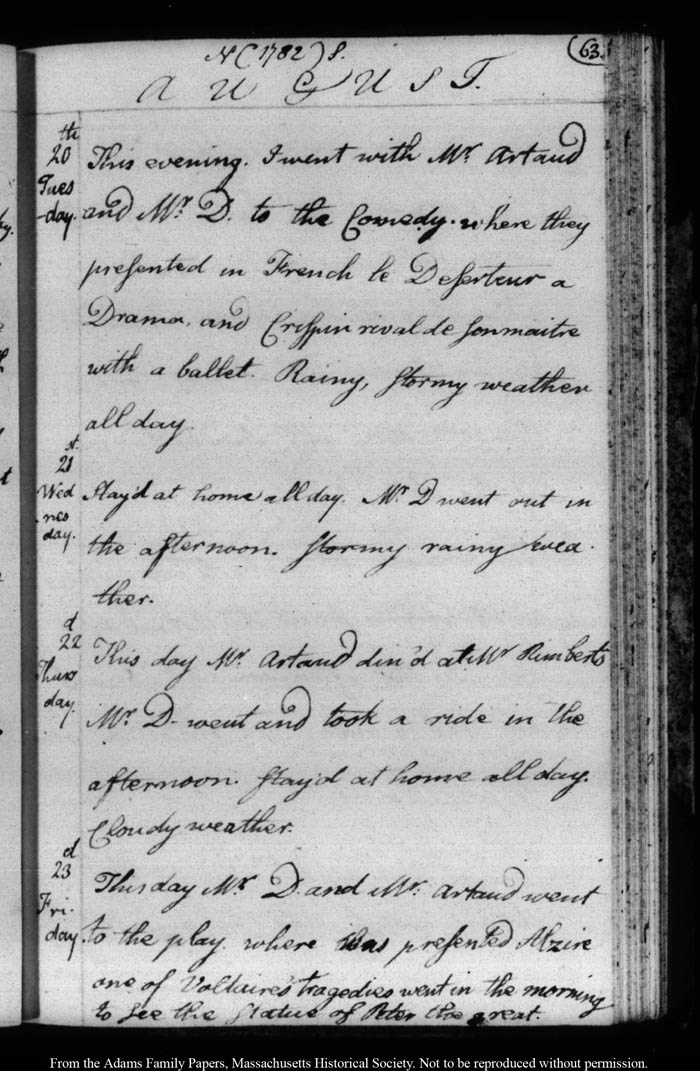 N (1782) S.
63.
AUGUST.
th
20
Tues
-day.
This evening. I went with Mr. Artaud
and Mr. D. to the Comedy. where they
presented in French le Deserteur a
Drama, and Crispin rival de son maitre
with a ballet. Rainy, stormy weather
all day.
st.
21
Wed
nes
day.
Stay'd at home all day. Mr. D went out in
the afternoon. Stormy rainy wea-
ther.
d
22
Thurs
day.
This day Mr. Artaud din'd at Mr Rimberts
Mr. D- went and took a ride in the
afternoon. Stay'd at home all day.
Cloudy weather.
d
23
Fri-
day
This day Mr. D. and Mr. Artaud went
to the play. where was presented Alzire
one of Voltaire's tragedies went in the morning
to see the Statue of Peter the great.
From the Adams Family Papers, Massachusetts Historical Society. Not to be reproduced without permission.